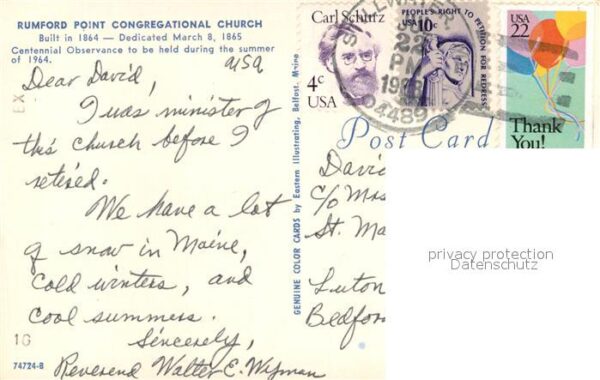 RUMFORD POINT CONGREGATIONAL CHURCH
Built in 1864 — Dedicated March 8, 1865
Centennial Observance to be held during the summer
of 1964.
USA
Dear David,
I was minister of
this church before I
retired.
We have a lot
of snow in Maine,
cold winters, and
cool summers.
Sincerely,
Reverend Walter E. Wyman
EX
10
74724-B
GENUINE COLOR CARDS by Eastern Illustrating, Belfast, Maine
Carl Schurz
4c
USA
PEOPLE'S RIGHT TO PETITION FOR REDRESS
10c
USA
22
Thank
You!
22
PM
04489
Post Card
David
c/o Mrs
St. Ma
Luton
Bedfor
privacy protection
Datenschutz